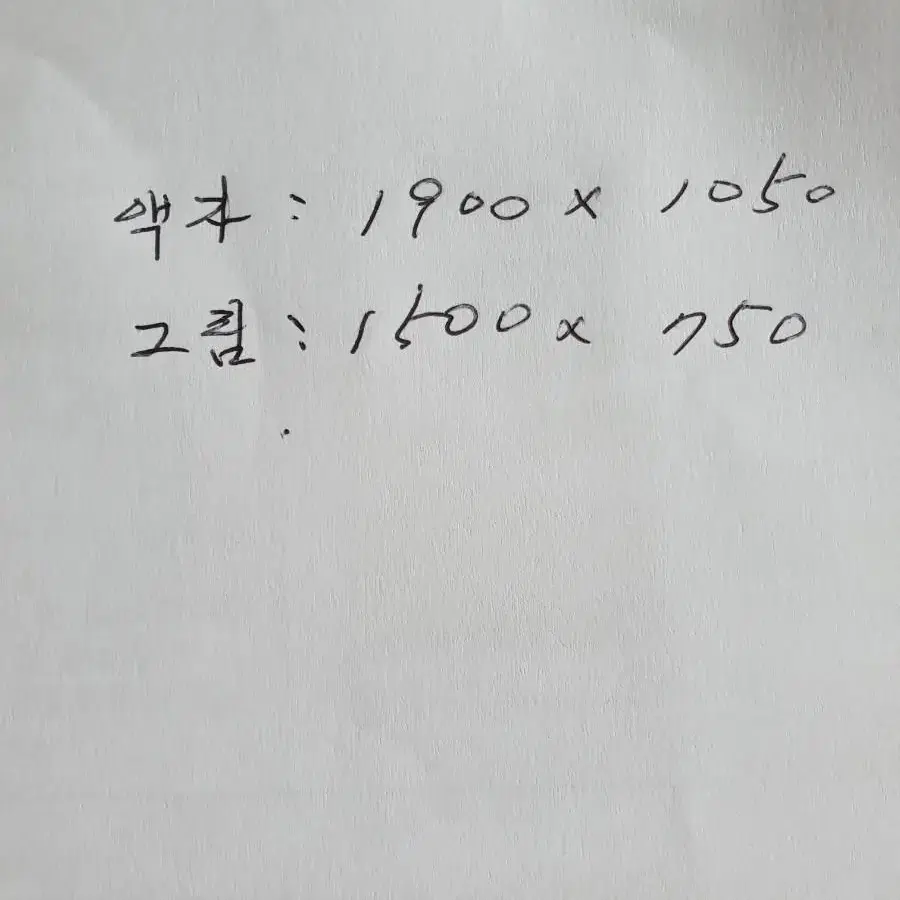 액자 : 1900 x 1050
그림 : 1500 x 750